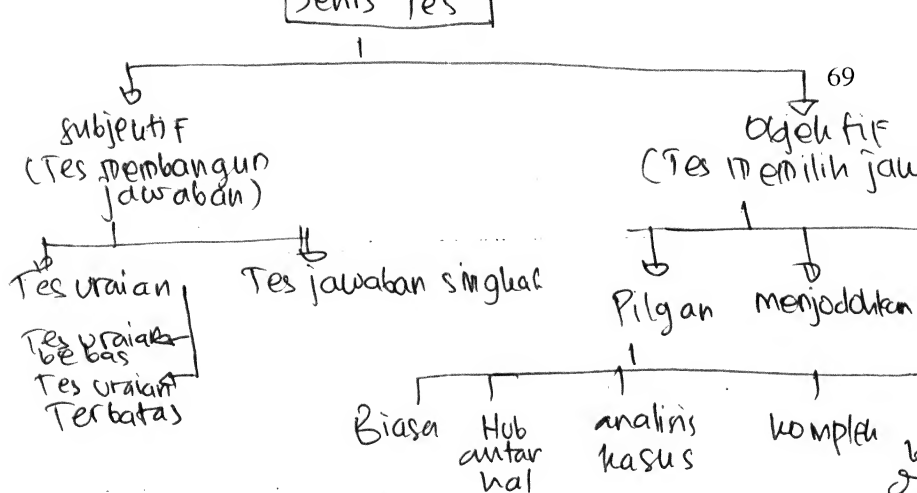 Jenis Tes
69
Subjektif
(Tes membangun
jawaban)
Objektif
(Tes memilih jaw
Tes uraian
Tes jawaban singkat
Tes uraian
bebas
Tes uraian
Terbatas
Pilgan
menjodohkan
Biasa
Hub
antar
hal
analisis
kasus
komplek